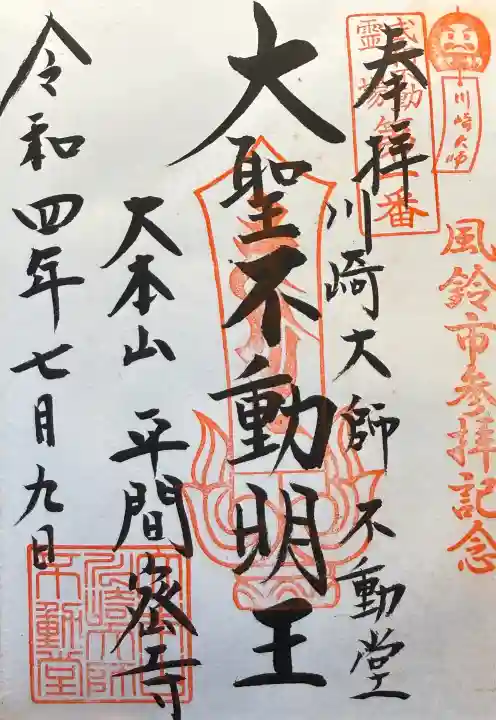 川崎大師
風鈴市参拝記念
奉拝
武相不動
霊場第一番
川崎大師不動堂
大聖不動明王
大本山 平間密寺
令和四年七月九日
川崎大師
不動堂